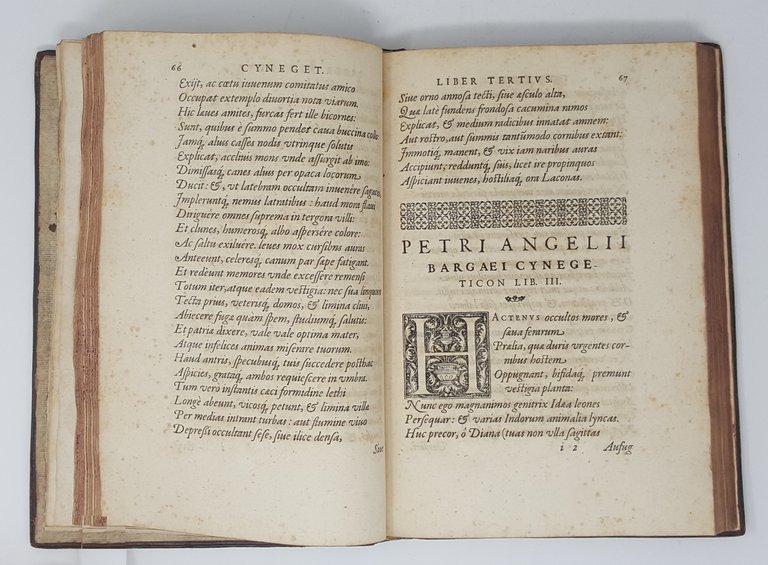 66 CYNEGET.
Exijt, ac cœtu iuuenum comitatus amico
Occupat extemplo diuortia nota viarum.
Hic laues amites, furcas fert ille bicornes:
Sunt, quibus è summo pendet caua buccina collo
Jamq́, alius casses nodis vtrinque solutis
Explicat, accliuis mons vnde assurgit ab imo:
Dimissasq́, canes alius per opaca locorum
Ducit: &, vt latebram occultam inuenêre sagaces,
Implerũntq́, nemus latratibus: haud mora flaui
Diriguêre omnes suprema in tergora villi:
Et clunes, humerosq́, albo aspersêre colore:
Ac saltu exiluêre. leues mox cursibus auras
Anteeunt, celeresq́, canum par sæpe fatigant.
Et redeunt memores vnde excessere remensi
Totum iter, atque eadem vestigia: nec sua linquunt
Tecta prius, veteresq́, domos, & limina cliui,
Abiecere fugæ quam spem, studiumq́, salutis:
Et patriæ dixere, vale vale optima mater,
Atque infelices animas miserare tuorum.
Haud antris, specubusq́, tuis succedere posthac
Aspicies, grataq́, ambos requiescere in vmbra.
Tum vero instantis cæci formidine lethi
Longè abeunt, vicosq́, petunt, & limina villæ
Per medias intrant turbas: aut flumine viuo
Depressi occultant sese, siue ilice densa,
Siue
LIBER TERTIVS. 67
Siue orno annosa tecti, siue æsculo alta,
Quæ latè fundens frondosa cacumina ramos
Explicat, & medium radicibus innatat amnem:
Aut rostro, aut summis tantùmodo cornibus extant:
Immotiq́, manent, & vix iam naribus auras
Accipiunt, redduntq́, suis, licet ire propinquos
Aspiciant iuuenes, hostiliaq́, ora Laconas.
PETRI ANGELII
BARGAEI CYNEGE-
TICON LIB. III.
HACTENVS occultos mores, &
sæua ferarum
Prælia, quæ duris vrgentes cor-
nibus hostem
Oppugnant, bifidaq́, premunt
vestigia planta:
Nunc ego magnanimos genitrix Idæa leones
Persequar: & varias Indorum animalia lyncas.
Huc precor, ô Diana (tuas non vlla sagittas
i 2 Aufug